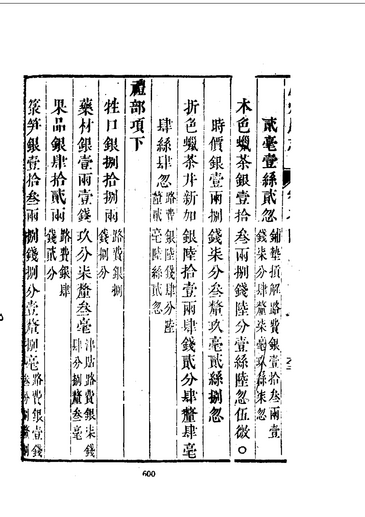 貳毫壹絲貳忽鋪墊損解路費銀壹拾叁兩壹
錢柒分肆釐柒毫玖絲柒忽
本色蠟茶銀壹拾叁兩捌錢陸分壹絲陸忽伍微○
時價銀壹兩捌錢柒分叁釐玖毫貳絲捌忽
折色蠟茶并新加銀陸拾壹兩肆錢貳分肆釐肆毫
肆絲肆忽路費銀陸錢肆分陸
釐貳毫陸絲貳忽
禮部項下
牲口銀捌拾捌兩路費銀捌
錢捌分
藥材銀壹兩壹錢玖分柒釐叁毫津貼路費銀柒錢
肆分捌釐叁毫
果品銀肆拾貳兩路費銀肆
錢貳分
菉笋銀壹拾叁兩捌錢捌分壹釐捌毫路費銀壹錢
叁分捌釐捌
600